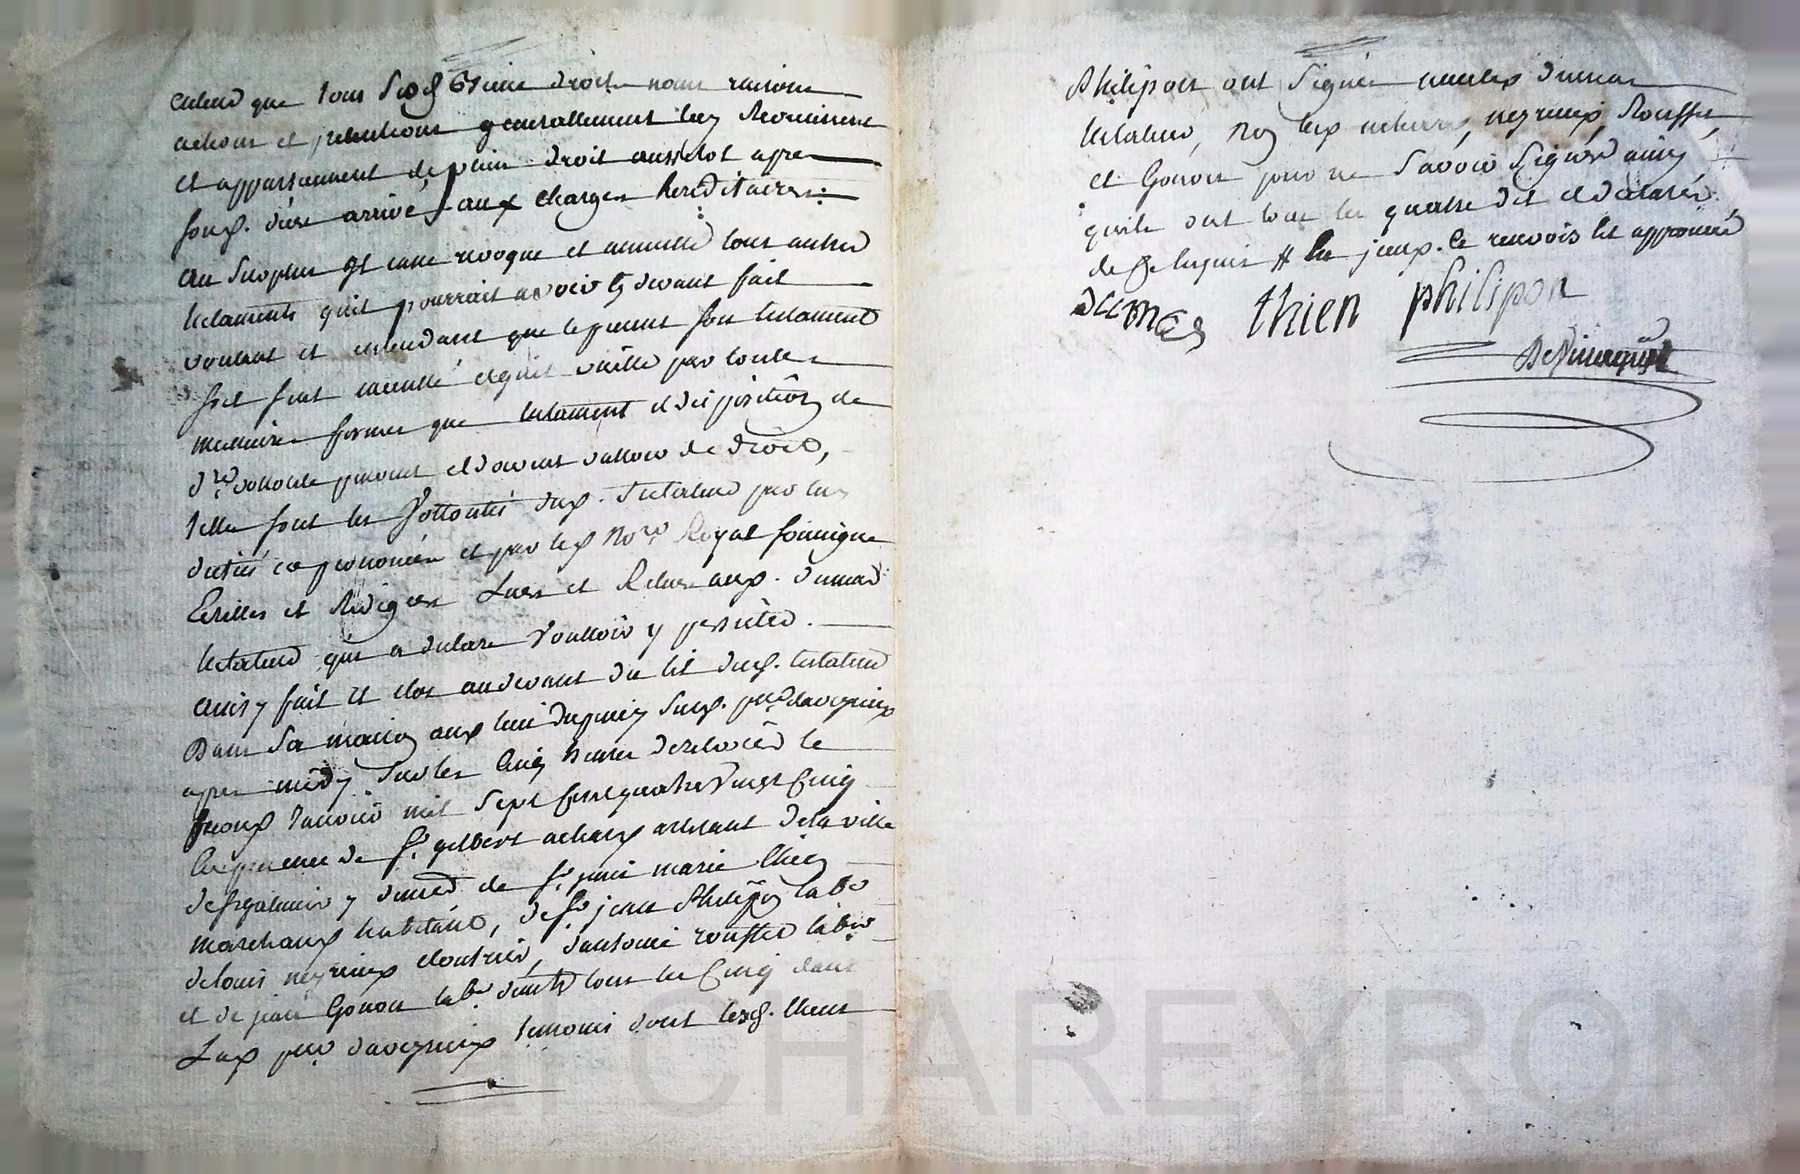 entend que tous Ses Biens droits noms raisons
actions et pretentions generallement luy Reviennent
et appartiennent de plain droit aussitot apres
sond. deces arrivé, aux charges hereditaires:
Au Surplus il casse revoque et annulle tous autres
testaments quil pourrait avoir cy devant fait
voulant et entendant que le present son testament
soit seul execute et quil vaille par toutes
meilleures formes que testament et disposition de
dre vollonte peuvent et doivent valloir de droit,
telles sont les Vollontés dud. testateur par luy
dictés et prononcées et par led No.re Royal soussigné
Ecrittes et Redigées Lues et Relues aud. dumas
testateur qui a declare Vouloir y persister.
ainsy fait et clos audevant du lit dud. testateur
Dans Sa maison aud lieu Sud. p.sse daveyzieux
apres midy sur les Cinq heures le
Janvier mil Sept Cent quatre Vingt Cinq
En presence de S.r gilbert achard de la ville
de S.t galmier y dem.t de S.r marie thien
marchand habitant, de S.r jean Philipon lab.r
de louis neyrieux cloutrier, dantoine rousset lab.r
et de jean Gonon lab.r tous les Cinq dans
Lad p.sse daveyzieux temoins dont lesd. thien
Philipon ont Signés dumas
testateur, Non led achard, neyrieux, Rousset,
et Gonon pour ne Savoir Signer ainsy
quils ont tous les quatre dit et declarés
de ce requis # led jeux. le renvois est approuvé
DUMAS thien philipon
CHAREYRON